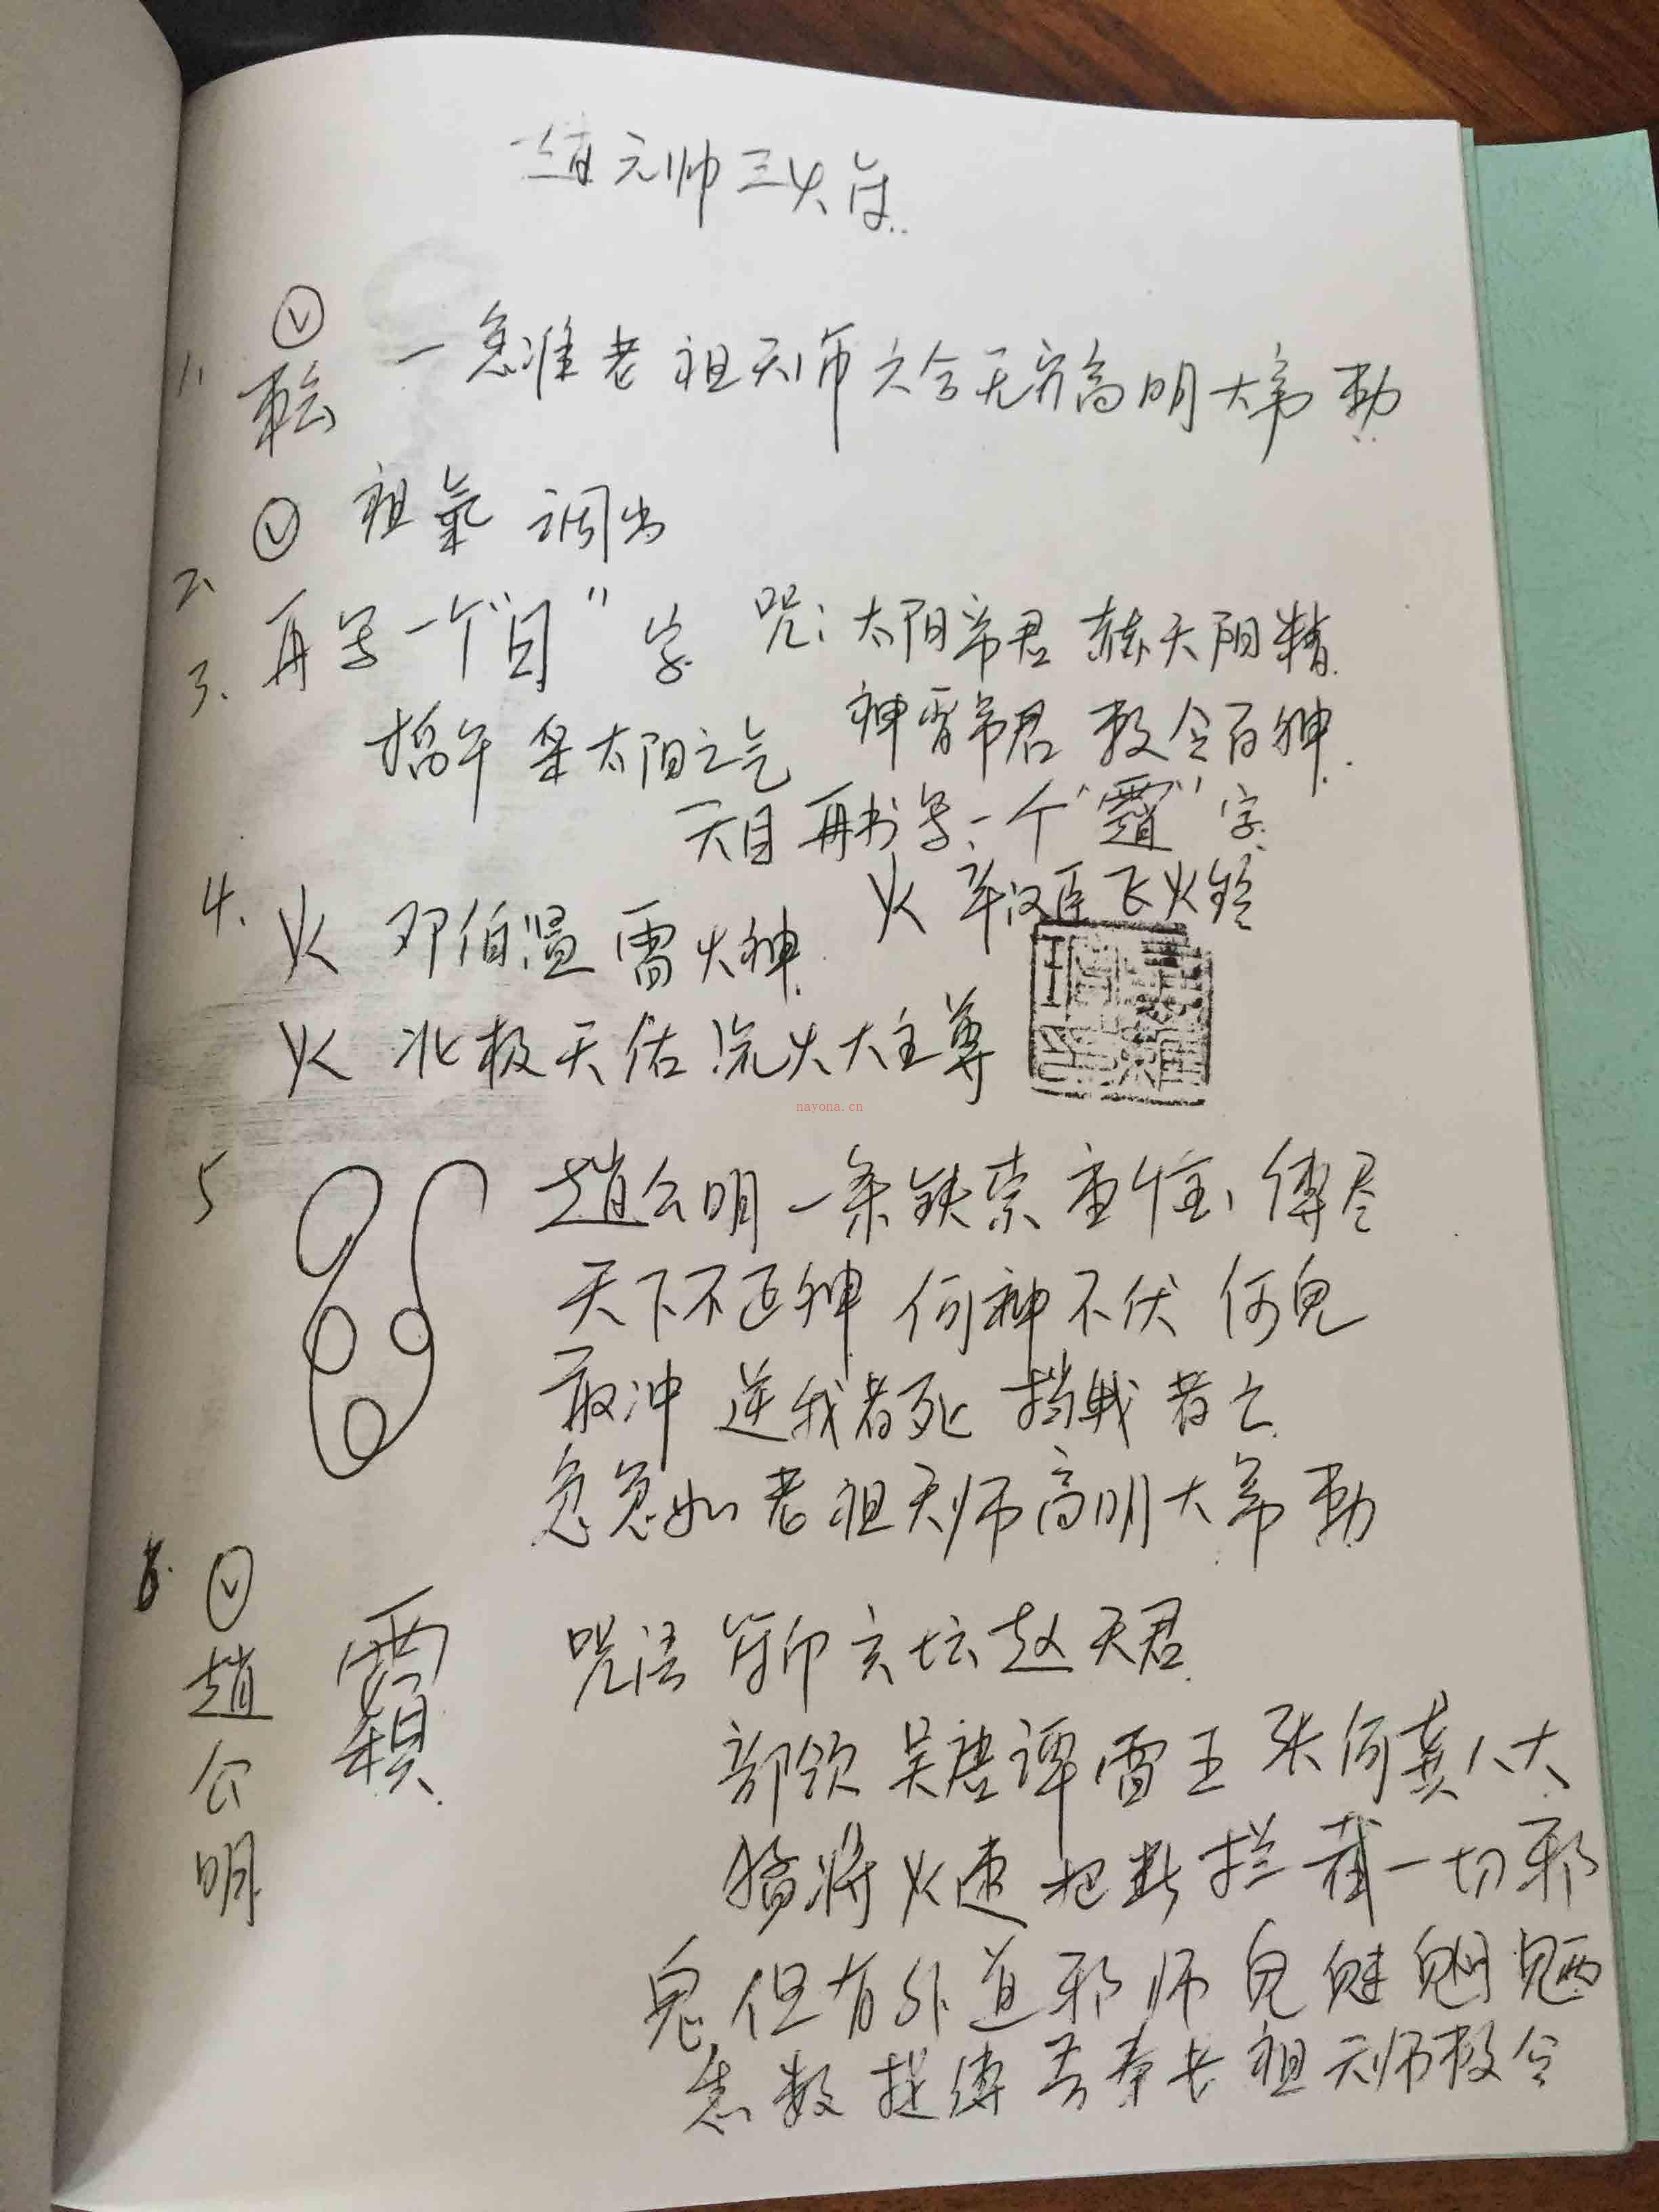 趙元帅三火符
1.
一急准老祖天师六合无穷高明大帝勅
祖氣 调出
2、
3、再写一个"日"字 咒：太阳帝君 赫天阳精
掐午 采太阳之气 神霄帝君 敕令百神
天目 再书写一个"霻"字
4、火 邓伯温 雷火神 火 辛汉臣 飞火铃
火 北极天佑 流火大主尊
nayona.cn
5 趙公明一条铁索重千
天下不正神 何神不伏 何鬼
敢冲 逆我者死 挡我者亡
急急如老祖天师高明大帝勅
6.
趙公明
咒语 符印玄坛赵天君
部领 吴唐谭雷王张何龚八大
猛将火速把断拦截一切邪
鬼但有外道邪师鬼魅魍魉
悉数捉缚 吾奉老祖天师敕令